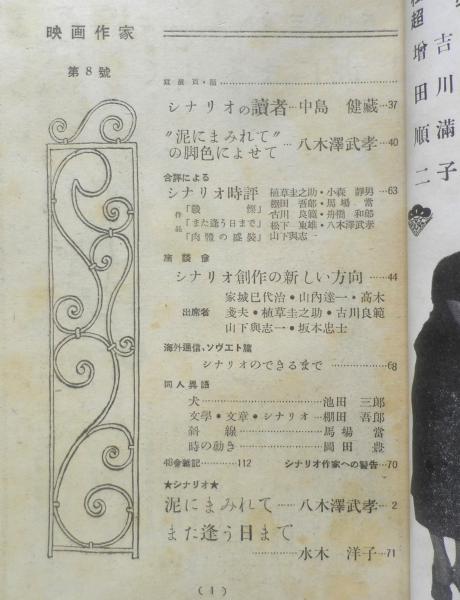 映画作家
第8號
シナリオの讀者…中島 健蔵…37
"泥にまみれて"
の脚色によせて…八木澤武孝…40
合評による
シナリオ時評 植草圭之助・小森 静男…63
棚田 吾郎・馬場 當
作品
古川 良範・舟橋 和郎
「また逢う日まで」 松下 東雄・八木澤武孝
「肉體の盛装」 山下與志一
座談會
シナリオ創作の新しい方向……44
家城巳代治・山内達一・高木
出席者 戔夫・植草圭之助・古川良範
山下與志一・坂本忠士
海外通信、ソヴエト篇
シナリオのできるまで……68
同人異語
犬……池田 三郎
文學・文章・シナリオ…棚田 吾郎
斜線……馬場 當
時の動き……岡田 豊
48會雜記……112 シナリオ作家への警告…70
★シナリオ★
泥にまみれて……八木澤武孝…2
また逢う日まで
……水木 洋子…71
( 1 )
吉川滿子
増田順二